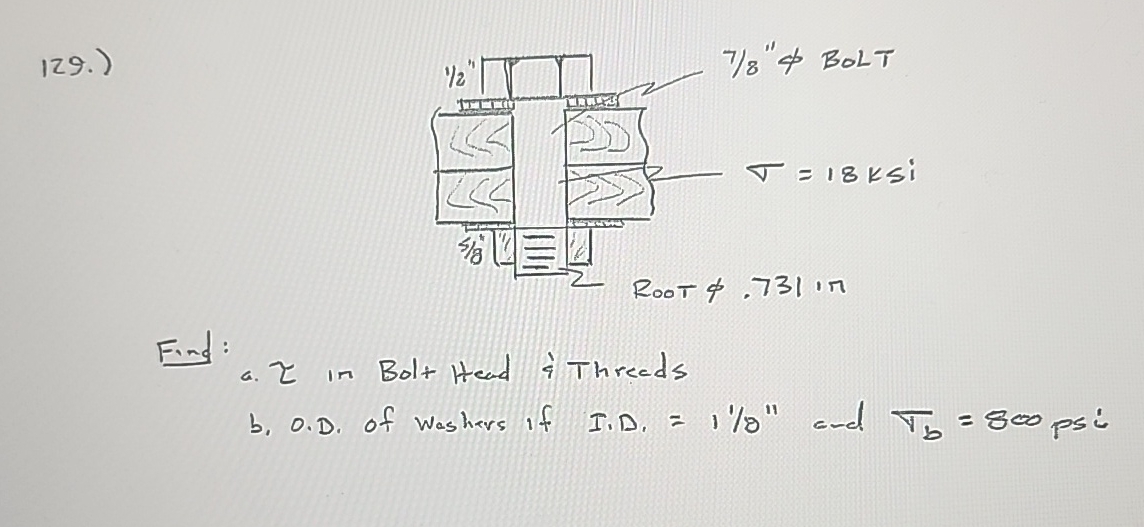 129.)
1/2"
7/8" ϕ BOLT
σ = 18 ksi
5/8"
ROOT ϕ .731 in
Find:
a. τ in Bolt Head & Threads
b. O.D. of Washers if I.D. = 1 1/8" and σb = 800 psi